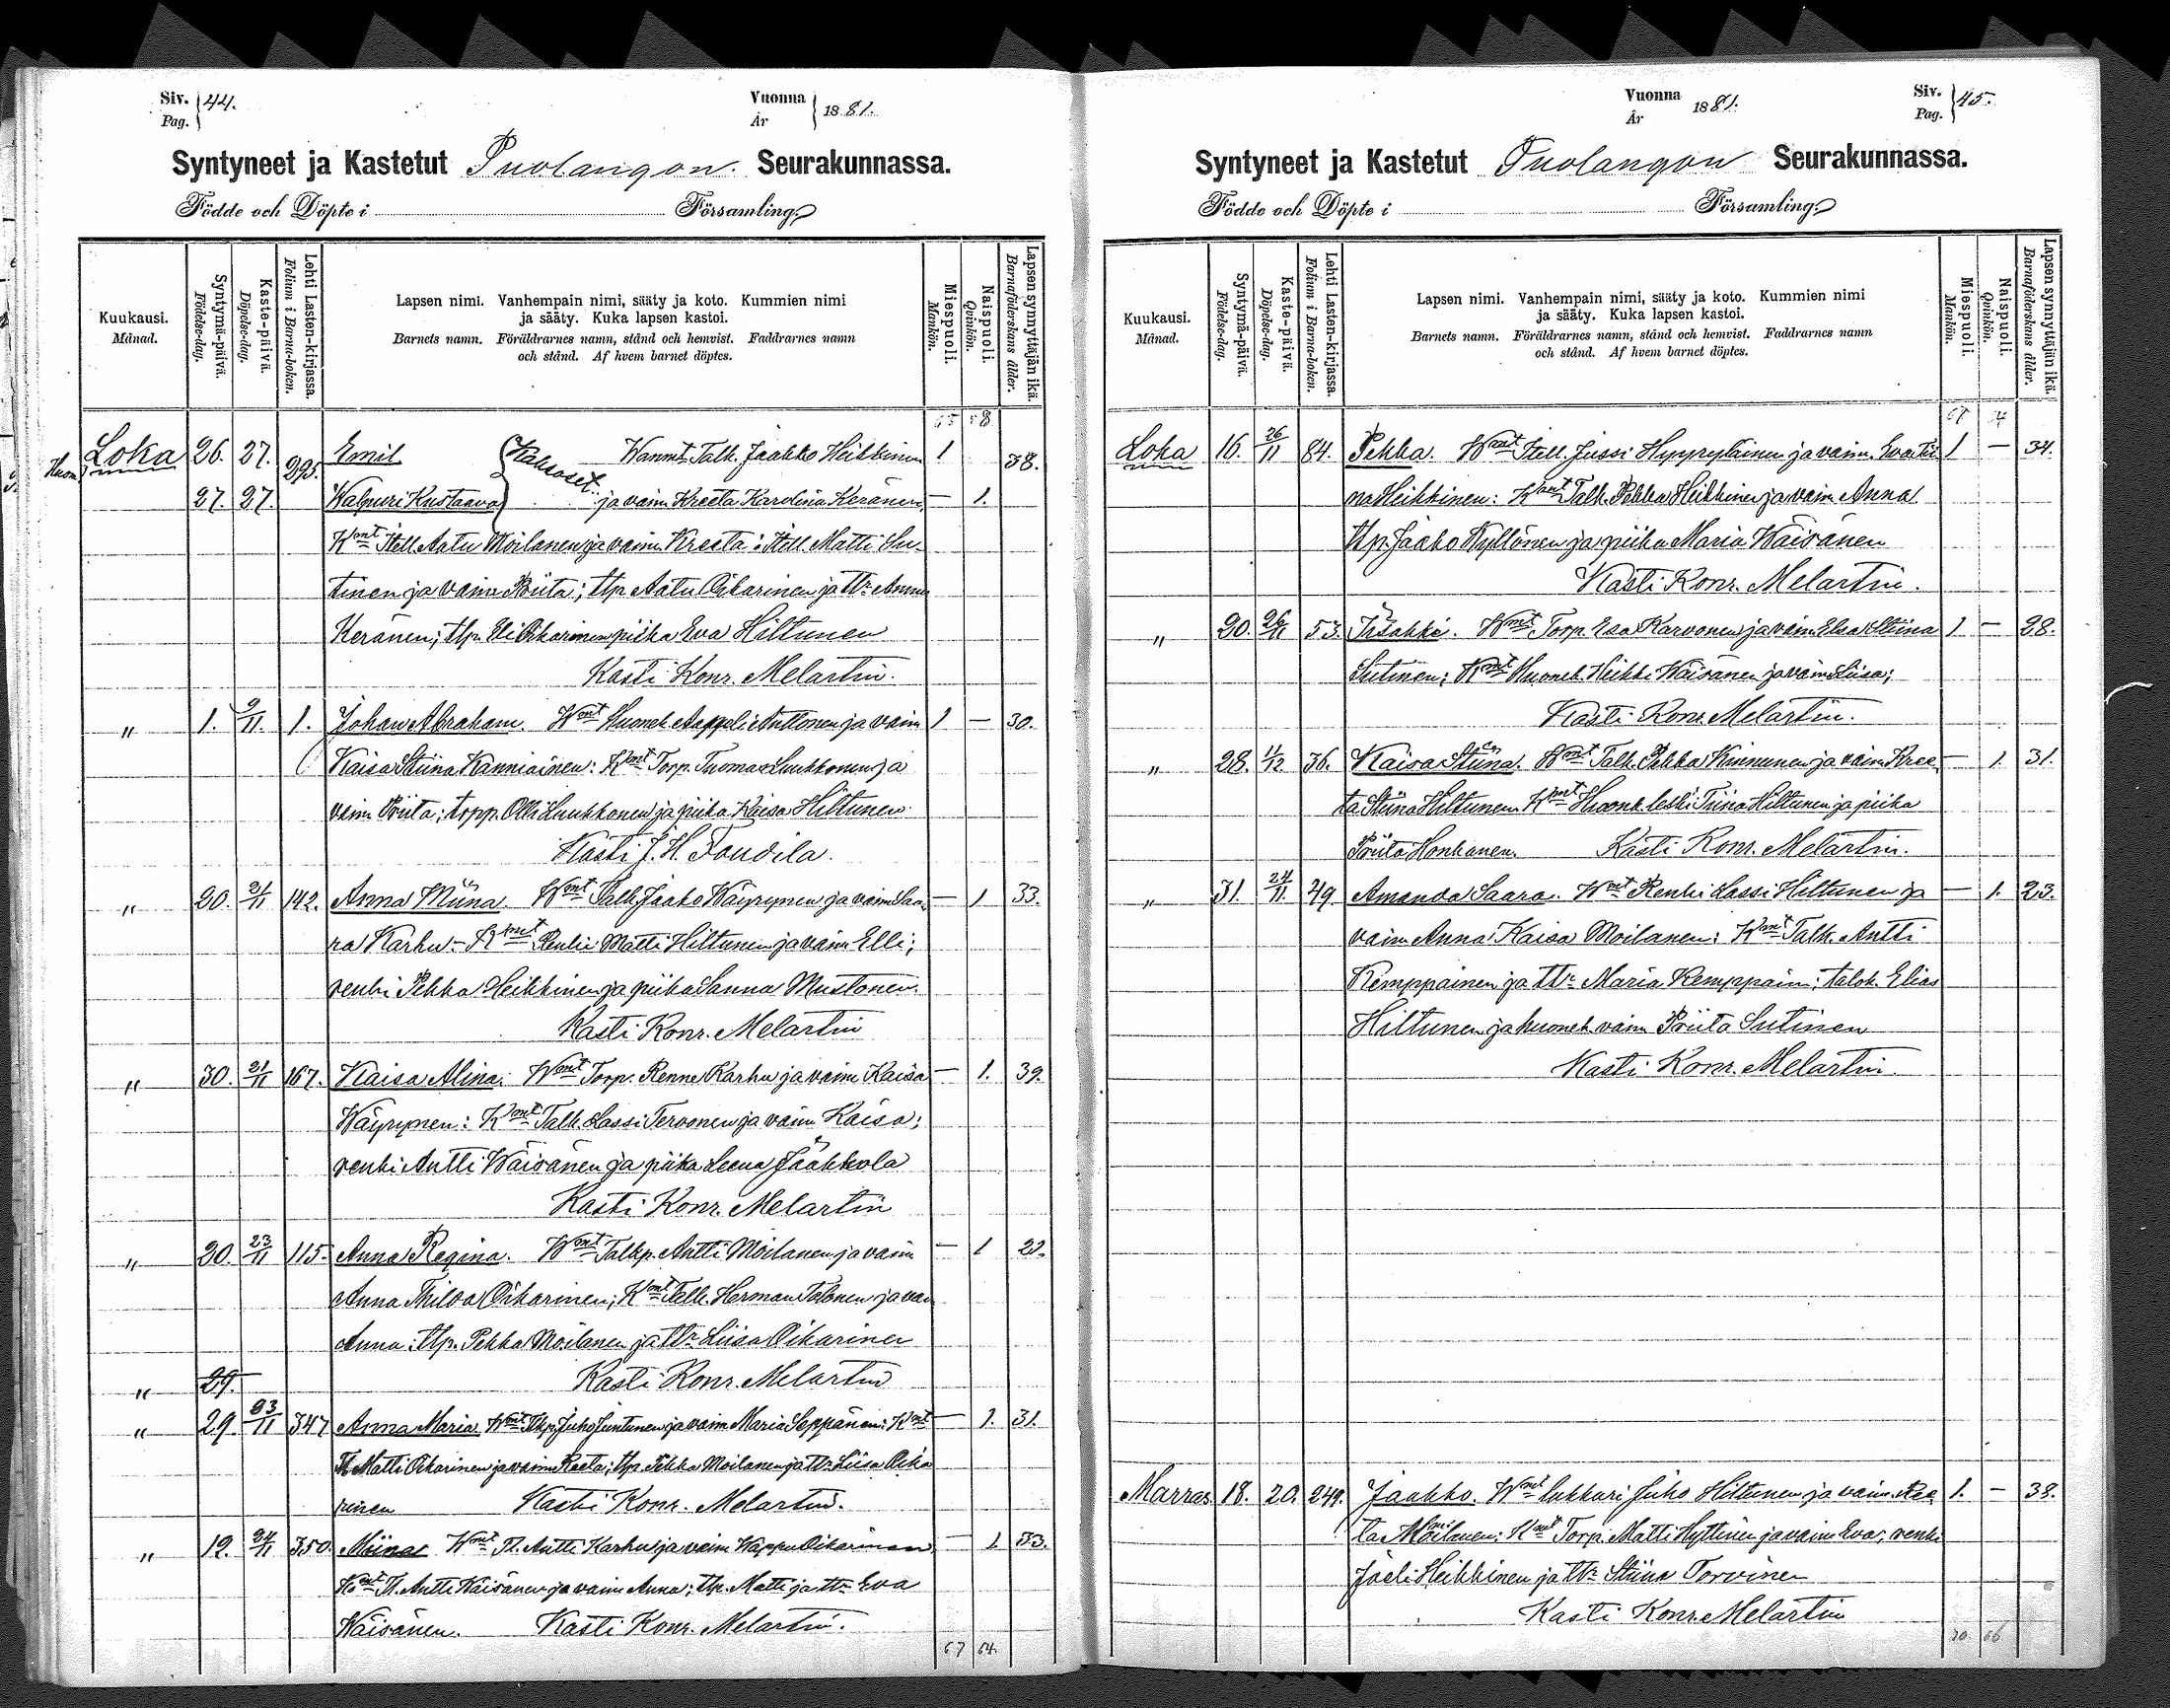 Siv. Pag. 44.
Vuonna År 1881.
Syntyneet ja Kastetut Puolangon. Seurakunnassa.
Födde och Döpte i Församling.
Kuukausi. Månad.
Syntymä-päivä. Födelse-dag.
Kaste-päivä. Döpelse-dag.
Lehti Lasten-kirjassa. Folium i Barna-boken.
Lapsen nimi. Vanhempain nimi, sääty ja koto. Kummien nimi
ja sääty. Kuka lapsen kastoi.
Barnets namn. Föräldrarnes namn, stånd och hemvist. Faddrarnes namn
och stånd. Af hvem barnet döptes.
Miespuoli. Mankön.
Naispuoli. Qvinkön.
Lapsen synnyttäjän ikä. Barnaföderskans ålder.
Loka 26. 27. 295. Emil Kaksoset. Wanmt Talk. Jaakko Heikkinen 1 38.
27. 27. Walpuri Kustaava ja vaim. Kreeta Karolina Keränen — 1.
Kmt Itell. Aatu Moilanen ja vaim. Kreeta; Itell. Matti Su-
tinen ja vaim. Priita; tlp. Aatu Oikarinen ja ttr. Anna
Keränen; tlp. Eli Oikarinen piika Eva Hiltunen
Kasti Konr. Melartin.
" 1. 9/11. 1. Johan Abraham. Wmt Huonek. Aappeli Anttonen ja vaim 1 — 30.
Kaisa Stiina Kanniainen: Kmt Torp. Tuomas Luukkonen ja
vaim Priita; torpp. Olli Luukkonen ja piika Kaisa Hiltunen
Kasti J. H. Toudila.
" 20. 21/11 142. Anna Miina. Wmt Talk. Jaako Wäyrynen ja vaim Saa- — 1 33.
ra Karhu. Kmt Renki Matti Hiltunen ja vaim Elli;
renki Pekka Heikkinen ja piika Sanna Mustonen.
Kasti Konr. Melartin
" 30. 21/11 167. Kaisa Alina. Wmt Torp. Renne Karhu ja vaim Kaisa — 1. 39.
Wäyrynen: Kmt Talk. Lassi Tervonen ja vaim Kaisa;
renki Antti Wäisänen ja piika Leena Jaakkola
Kasti Konr. Melartin
" 20. 23/11 115. Anna Regina. Wmt Talkp. Antti Moilanen ja vaim — 1 22.
Anna Oikarinen; Kmt Talk. Herman Talonen ja vai
Anna; tlp. Pekka Moilanen ja ttr. Liisa Oikarinen
Kasti Konr. Melartin
" 29.
" 29. 23/11 347 Anna Maria. Wmt Tlkp. Juho Juntunen ja vaim Maria Seppänen: Kmt — 1. 31.
Tl. Matti Oikarinen ja vaim Kaeta; tlp. Pekka Moilanen ja ttr. Liisa Oika
rinen Kasti Konr. Melartin.
" 12. 24/11 350 Miina Wmt Tl. Antti Karhu ja vaim Wappu Oikarinen — 1 33.
Kmt Tl. Antti Wäisänen ja vaim Anna; tlp. Matti ja ttr. Eva
Wäisänen. Kasti Konr. Melartin.
67 64.
Vuonna År 1881.
Siv. Pag. 45.
Syntyneet ja Kastetut Puolangon Seurakunnassa.
Födde och Döpte i Församling.
Kuukausi. Månad.
Syntymä-päivä. Födelse-dag.
Kaste-päivä. Döpelse-dag.
Lehti Lasten-kirjassa. Folium i Barna-boken.
Lapsen nimi. Vanhempain nimi, sääty ja koto. Kummien nimi
ja sääty. Kuka lapsen kastoi.
Barnets namn. Föräldrarnes namn, stånd och hemvist. Faddrarnes namn
och stånd. Af hvem barnet döptes.
Miespuoli. Mankön.
Naispuoli. Qvinkön.
Lapsen synnyttäjän ikä. Barnaföderskans ålder.
Loka 16. 26/11 84. Pekka. Wmt Itell. Jussi Hyyryläinen ja vaim. Eva 1 — 34.
na Heikkinen: Kmt Talk. Pekka Heikkinen ja vaim Anna
tlp. Jaako Kyllönen ja piika Maria Wäisänen
Kasti Konr. Melartin.
" 20. 26/11 53. Iisakki. Wmt Torp. Esa Karvonen ja vaim Elsa Stiina 1 — 28.
Sutinen; Kmt Huonek. Heikki Wäisänen ja vaim Liisa;
Kasti Konr. Melartin.
" 28. 11/12 36. Kaisa Stiina. Wmt Talk. Pekka Kinnunen ja vaim Kree- — 1. 31.
ta Stiina Hiltunen. Kmt Huonk. leski Tiina Hiltunen ja piika
Priita Honkanen. Kasti Konr. Melartin.
" 31. 24/11. 49. Amanda Saara. Wmt Renki Lassi Hiltunen ja — 1. 23.
vaim Anna Kaisa Moilanen: Kmt Talk. Antti
Kemppainen ja ttr. Maria Kemppain; talok. Elias
Hiltunen ja huonek. vaim Priita Sutinen
Kasti Konr. Melartin.
Marras 18. 20. 249. Jaakko. Wmt lukkari Juho Hiltunen ja vaim. 1. — 38.
ta Moilanen: Kmt Torp. Matti Hyttinen ja vaim Eva; renki
Joeli Heikkinen ja ttr. Stiina Torvinen
Kasti Konr. Melartin
70 66